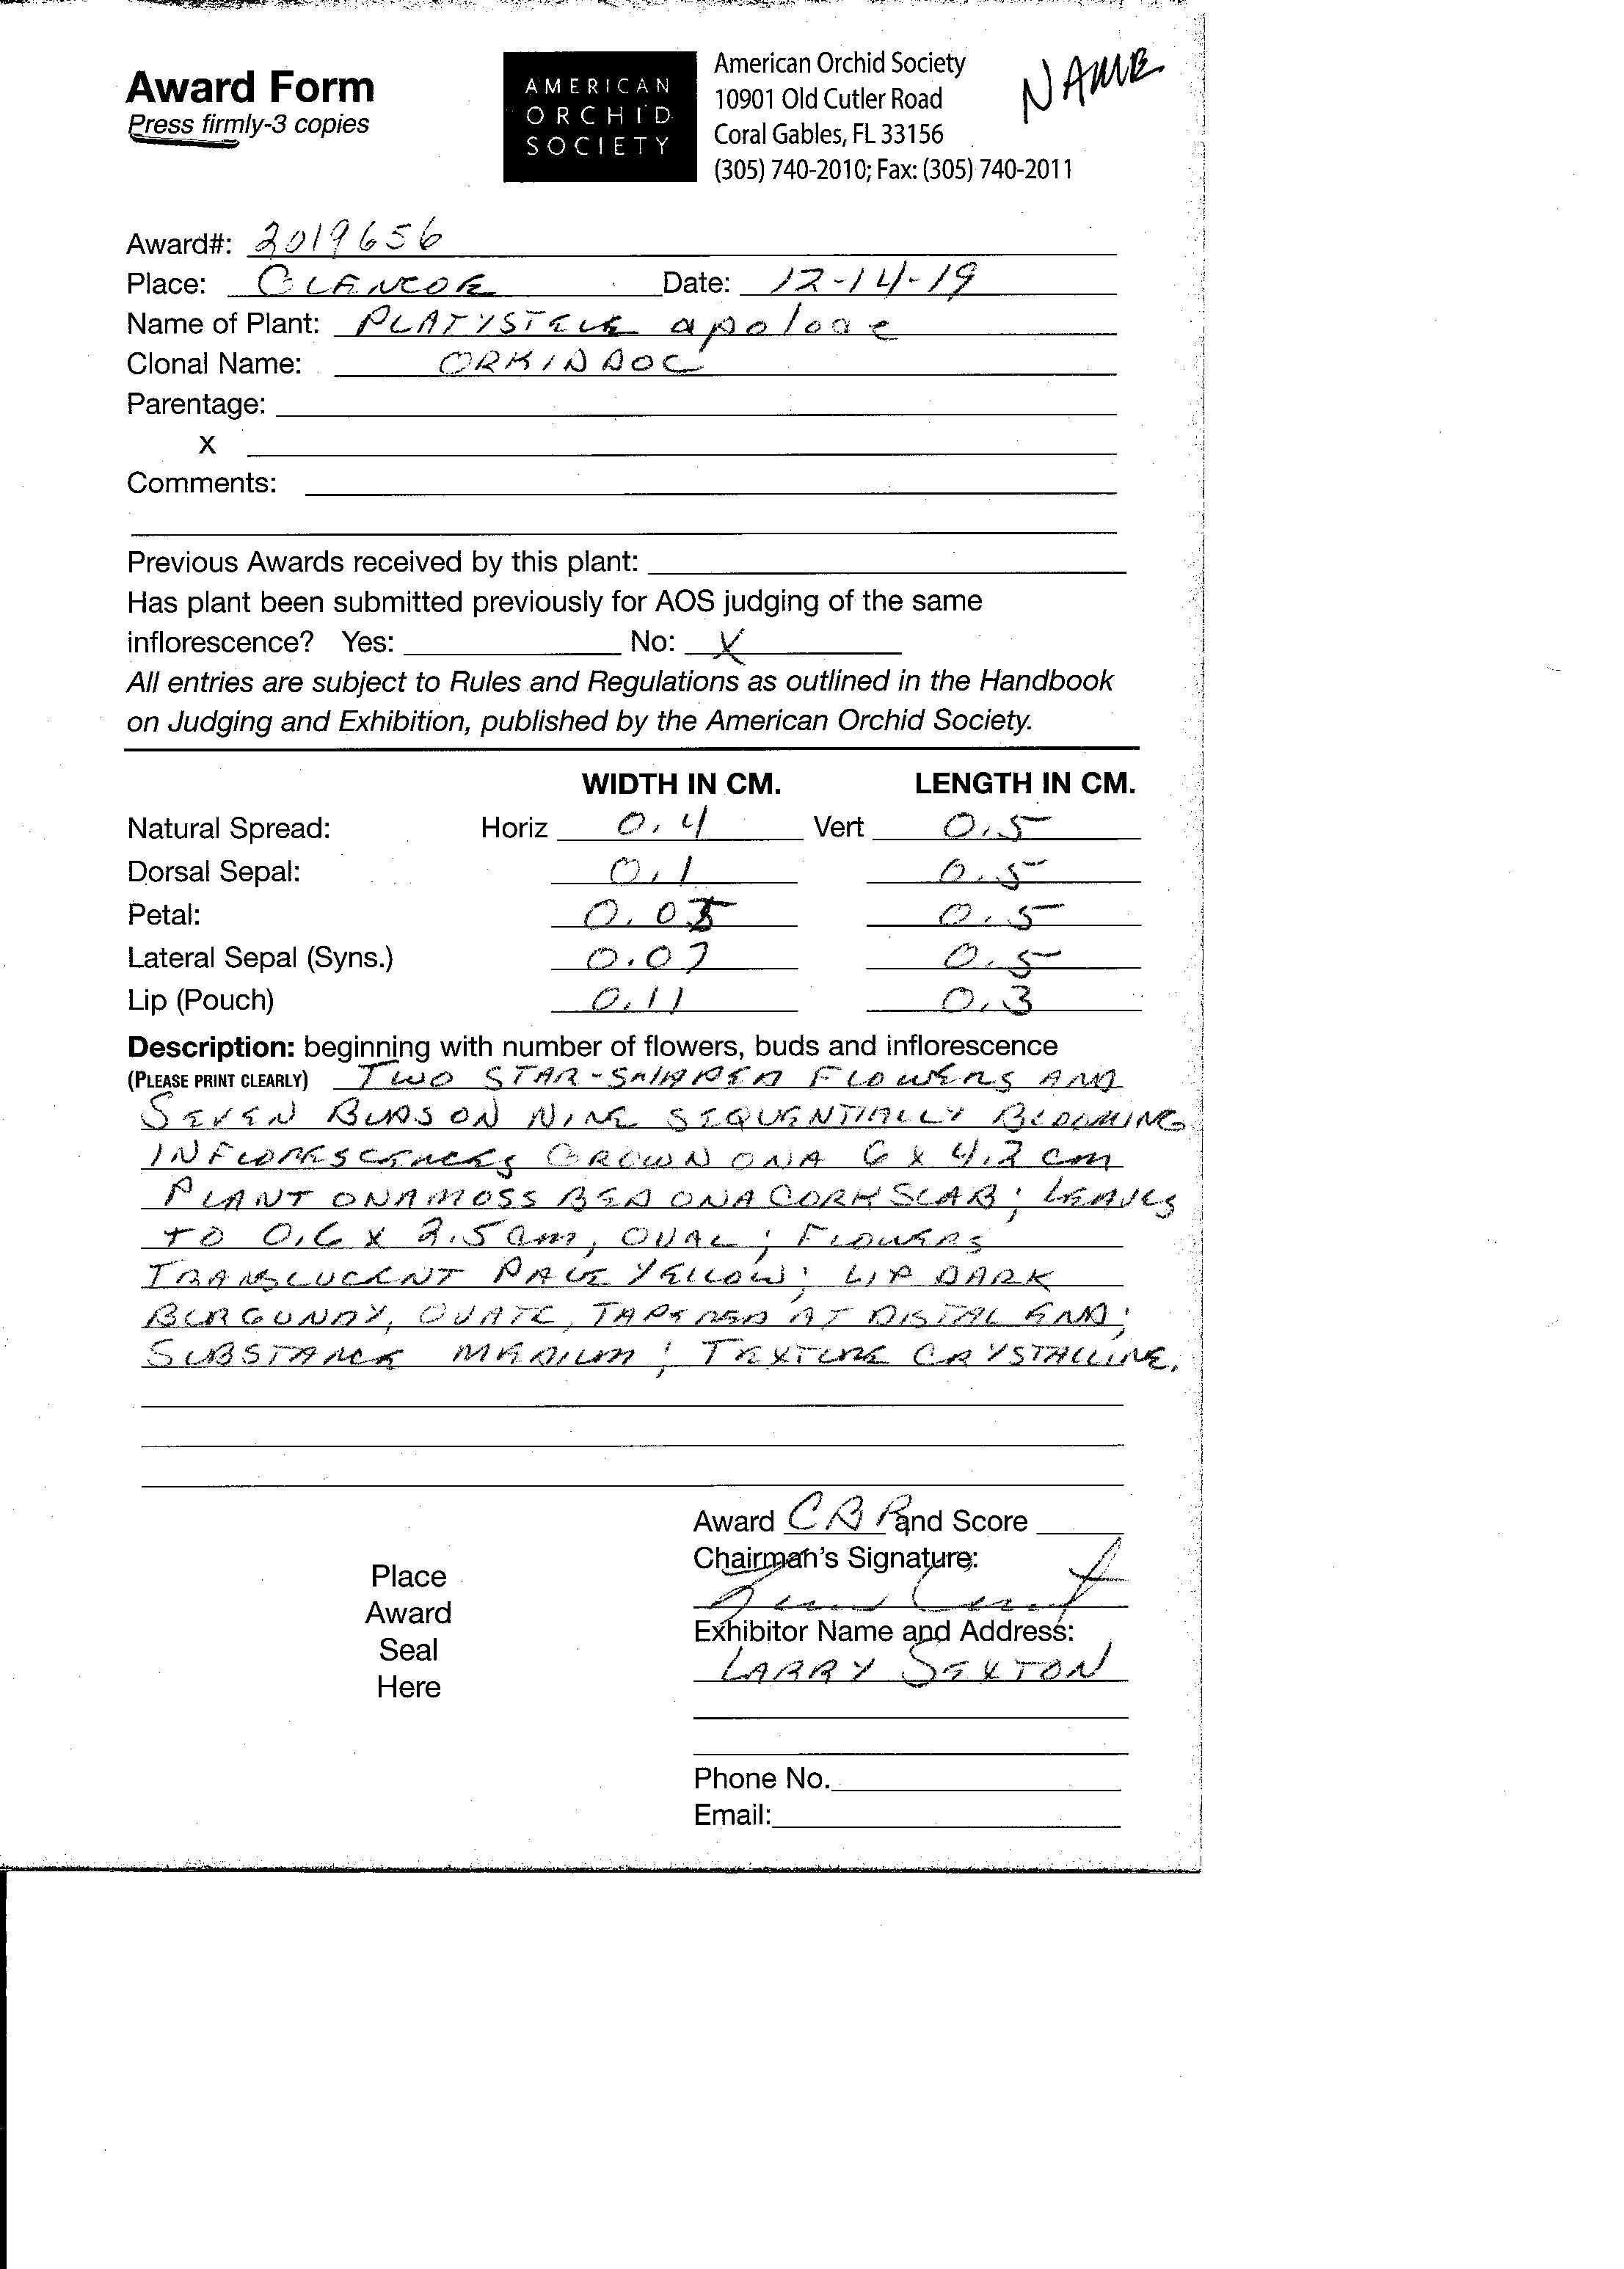 Award Form
Press firmly-3 copies
AMERICAN
ORCHID
SOCIETY
American Orchid Society
10901 Old Cutler Road
Coral Gables, FL 33156
(305) 740-2010; Fax: (305) 740-2011
NAME
Award#: 2019656
Place: GLENCOE Date: 12-14-19
Name of Plant: PLATYSTELE
Clonal Name: ORKINDOC
Parentage:
X
Comments:
Previous Awards received by this plant:
Has plant been submitted previously for AOS judging of the same
inflorescence? Yes: No: X
All entries are subject to Rules and Regulations as outlined in the Handbook
on Judging and Exhibition, published by the American Orchid Society.
WIDTH IN CM. LENGTH IN CM.
Natural Spread: Horiz 0.4 Vert 0.5
Dorsal Sepal: 0.1 0.5
Petal: 0.5
Lateral Sepal (Syns.) 0.07 0.5
Lip (Pouch) 0.11 0.3
Description: beginning with number of flowers, buds and inflorescence
(PLEASE PRINT CLEARLY) TWO STAR-SHAPED FLOWERS AND
SEVEN BUDS ON NINE SEQUENTIALLY BLOOMING
INFLORESCENCES GROWN ON A 6 X 4.2 cm
PLANT ON A MOSS BED ON A CORK SLAB; LEAVES
TO 0.6 X 2.5 cm, OVAL; FLOWERS
TRANSLUCENT PALE YELLOW; LIP DARK
BURGUNDY, OVATE, TAPERED AT DISTAL END;
SUBSTANCE MEDIUM; TEXTURE CRYSTALLINE.
Award CBR and Score
Chairman's Signature:
Place
Award
Seal
Here
Exhibitor Name and Address:
LARRY SEXTON
Phone No.
Email: